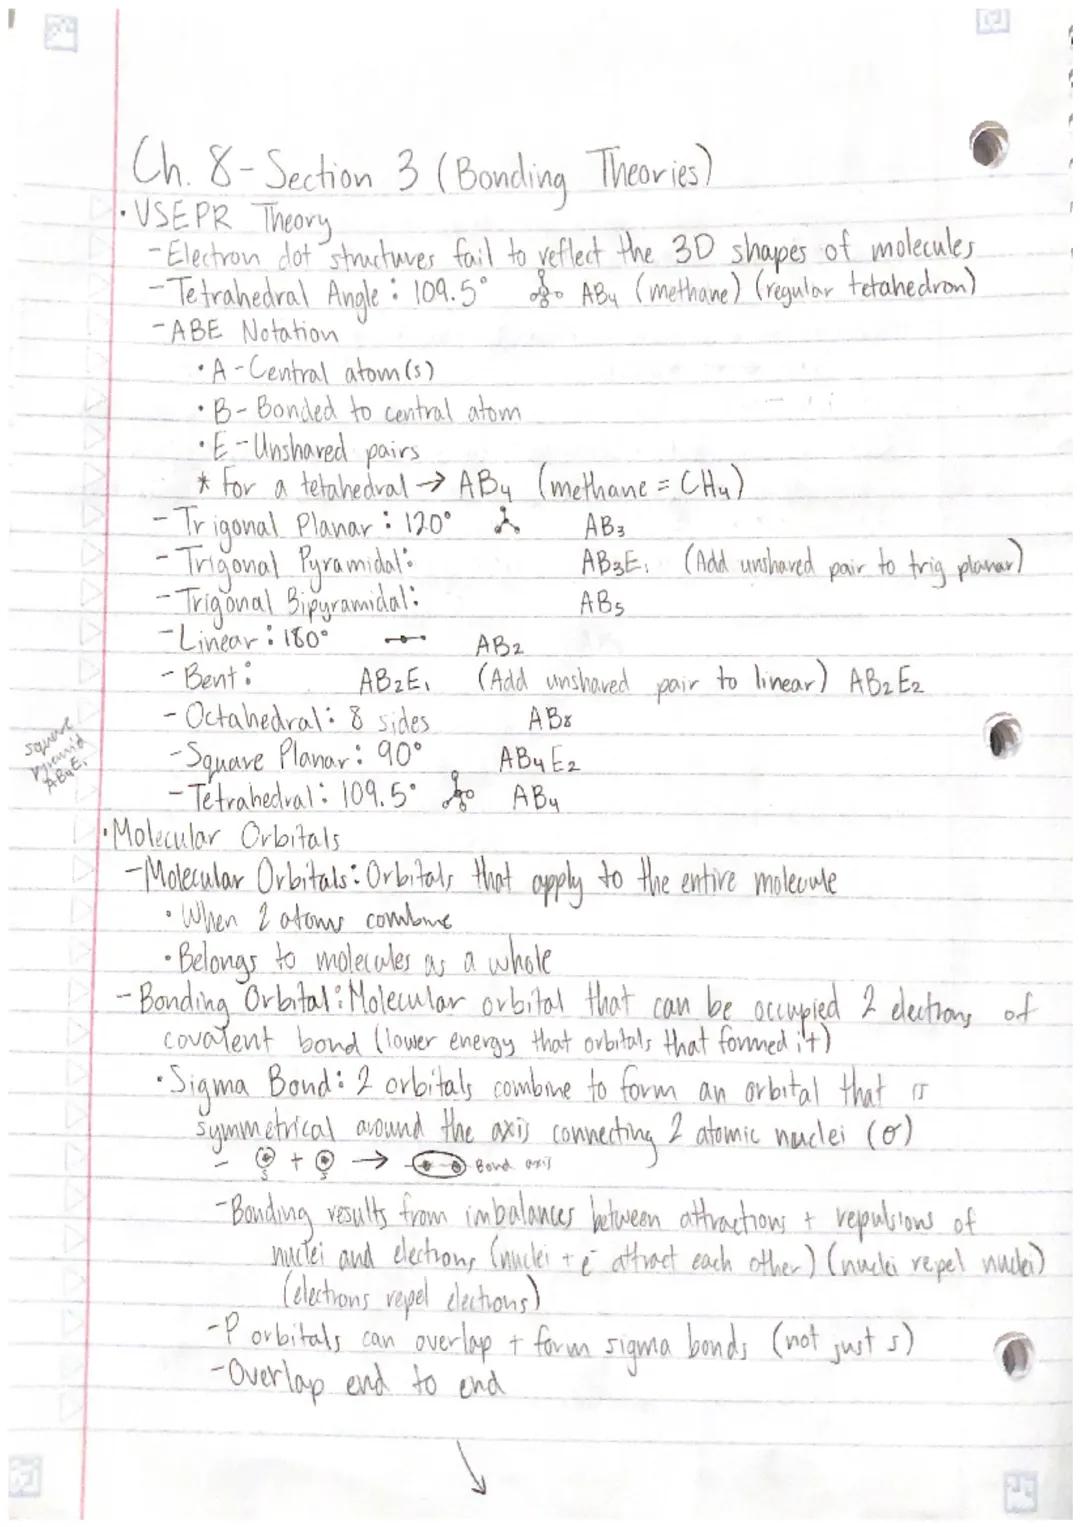 Ch. 8 - Section 3 (Bonding Theories)
• VSEPR Theory
- Electron dot structures fail to reflect the 3D shapes of molecules
- Tetrahedral Angle: 109.5° AB4 (methane) (regular tetahedron)
- ABE Notation
• A - Central atom(s)
• B - Bonded to central atom
• E - Unshared pairs
* For a tetahedral → AB4 (methane = CH4)
- Trigonal Planar: 120° AB3
- Trigonal Pyramidal: AB3E1 (Add unshared pair to trig planar)
- Trigonal Bipyramidal: AB5
- Linear: 180° AB2
- Bent: AB2E1 (Add unshared pair to linear) AB2E2
- Octahedral: 8 sides AB8
- Square Planar: 90° AB4E2
square
pyramid
AB4E1
- Tetrahedral: 109.5° AB4
• Molecular Orbitals
- Molecular Orbitals: Orbitals that apply to the entire molecule
• When 2 atoms combine
• Belongs to molecules as a whole
- Bonding Orbital: Molecular orbital that can be occupied 2 electrons of
covalent bond (lower energy that orbitals that formed it)
• Sigma Bond: 2 orbitals combine to form an orbital that is
symmetrical around the axis connecting 2 atomic nuclei (σ)
- s + s → Bond axis
- Bonding results from imbalances between attractions + repulsions of
nuclei and electrons (nuclei + e⁻ attract each other) (nuclei repel nuclei)
(electrons repel electrons)
- P orbitals can overlap + form sigma bonds (not just s)
- Overlap end to end